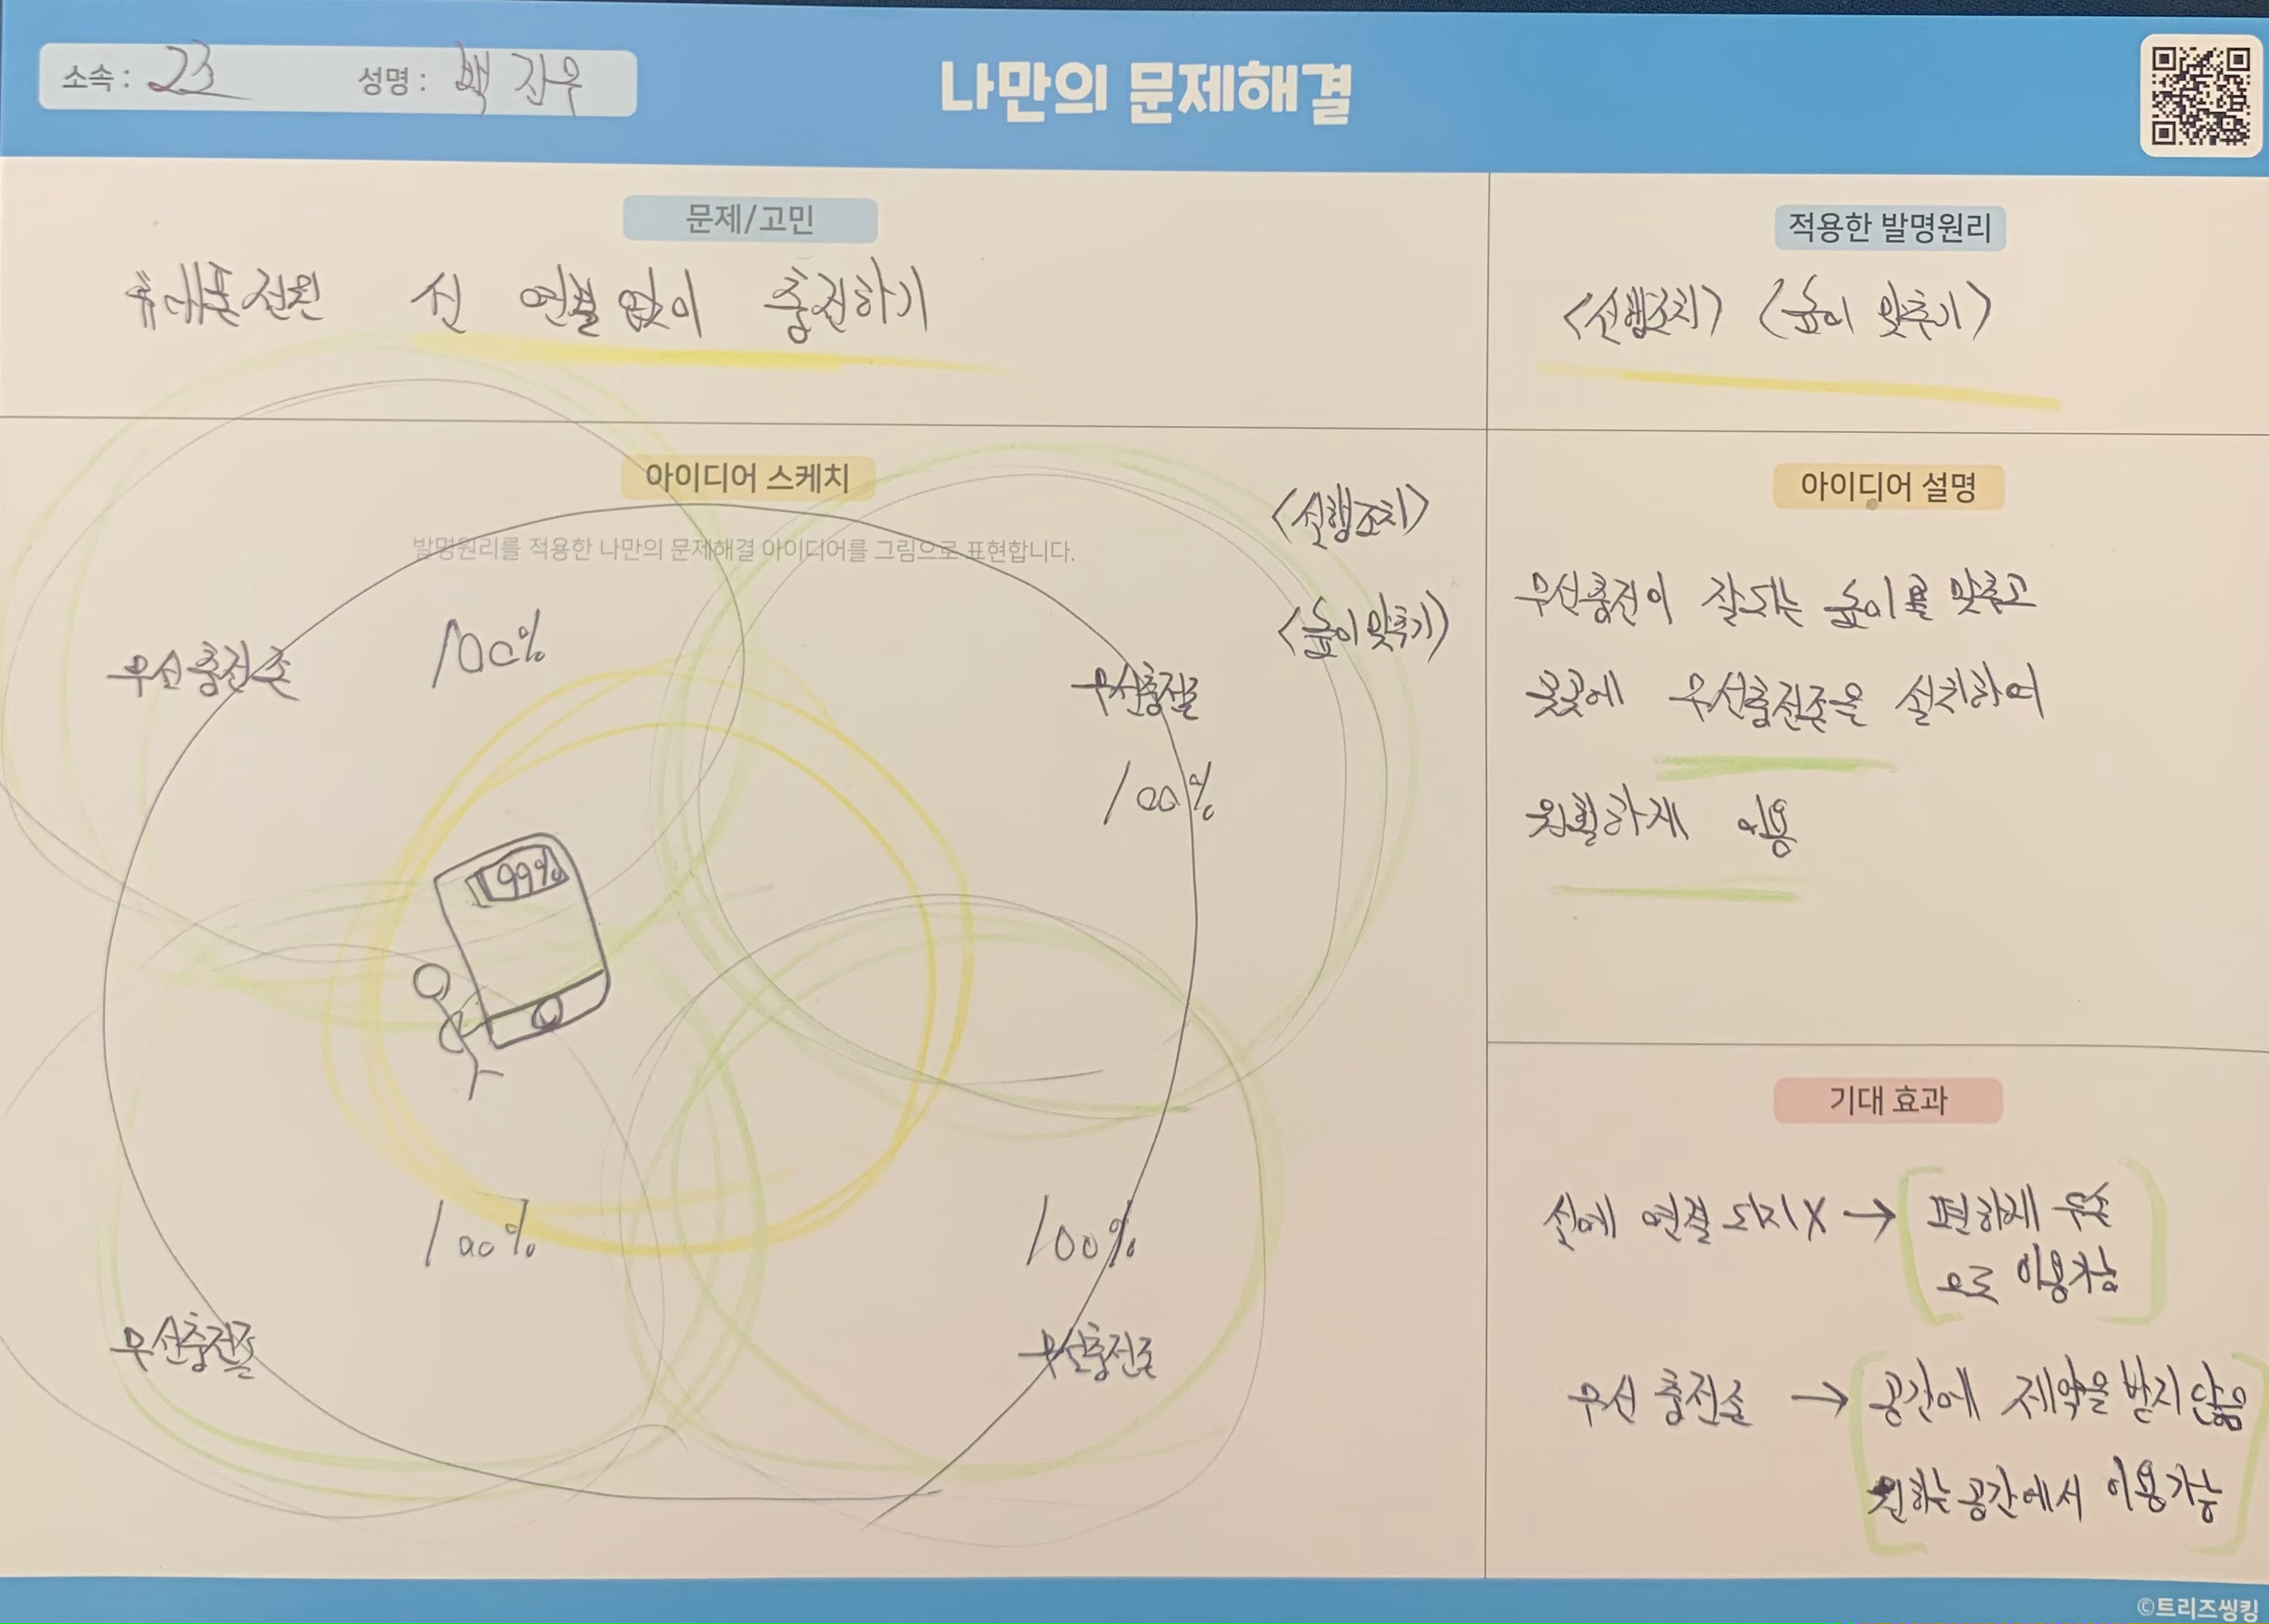 소속 : 23 성명 : 백진우
나만의 문제해결
문제/고민
휴대폰전원 선 연결 없이 충전하기
적용한 발명원리
<선행조치> <높이 맞추기>
아이디어 스케치
발명원리를 적용한 나만의 문제해결 아이디어를 그림으로 표현합니다.
<선행조치>
<높이맞추기>
무선충전존
100%
무선충전존
100%
99%
100%
무선충전존
100%
무선충전존
아이디어 설명
무선충전이 잘되는 높이를 맞추고
곳곳에 무선충전존을 설치하여
원활하게 이용
기대 효과
선에 연결 되지X → 편하게 무선
으로 이용가능
무선 충전존 → 공간에 제약을 받지 않음
원하는 공간에서 이용가능
©트리즈씽킹